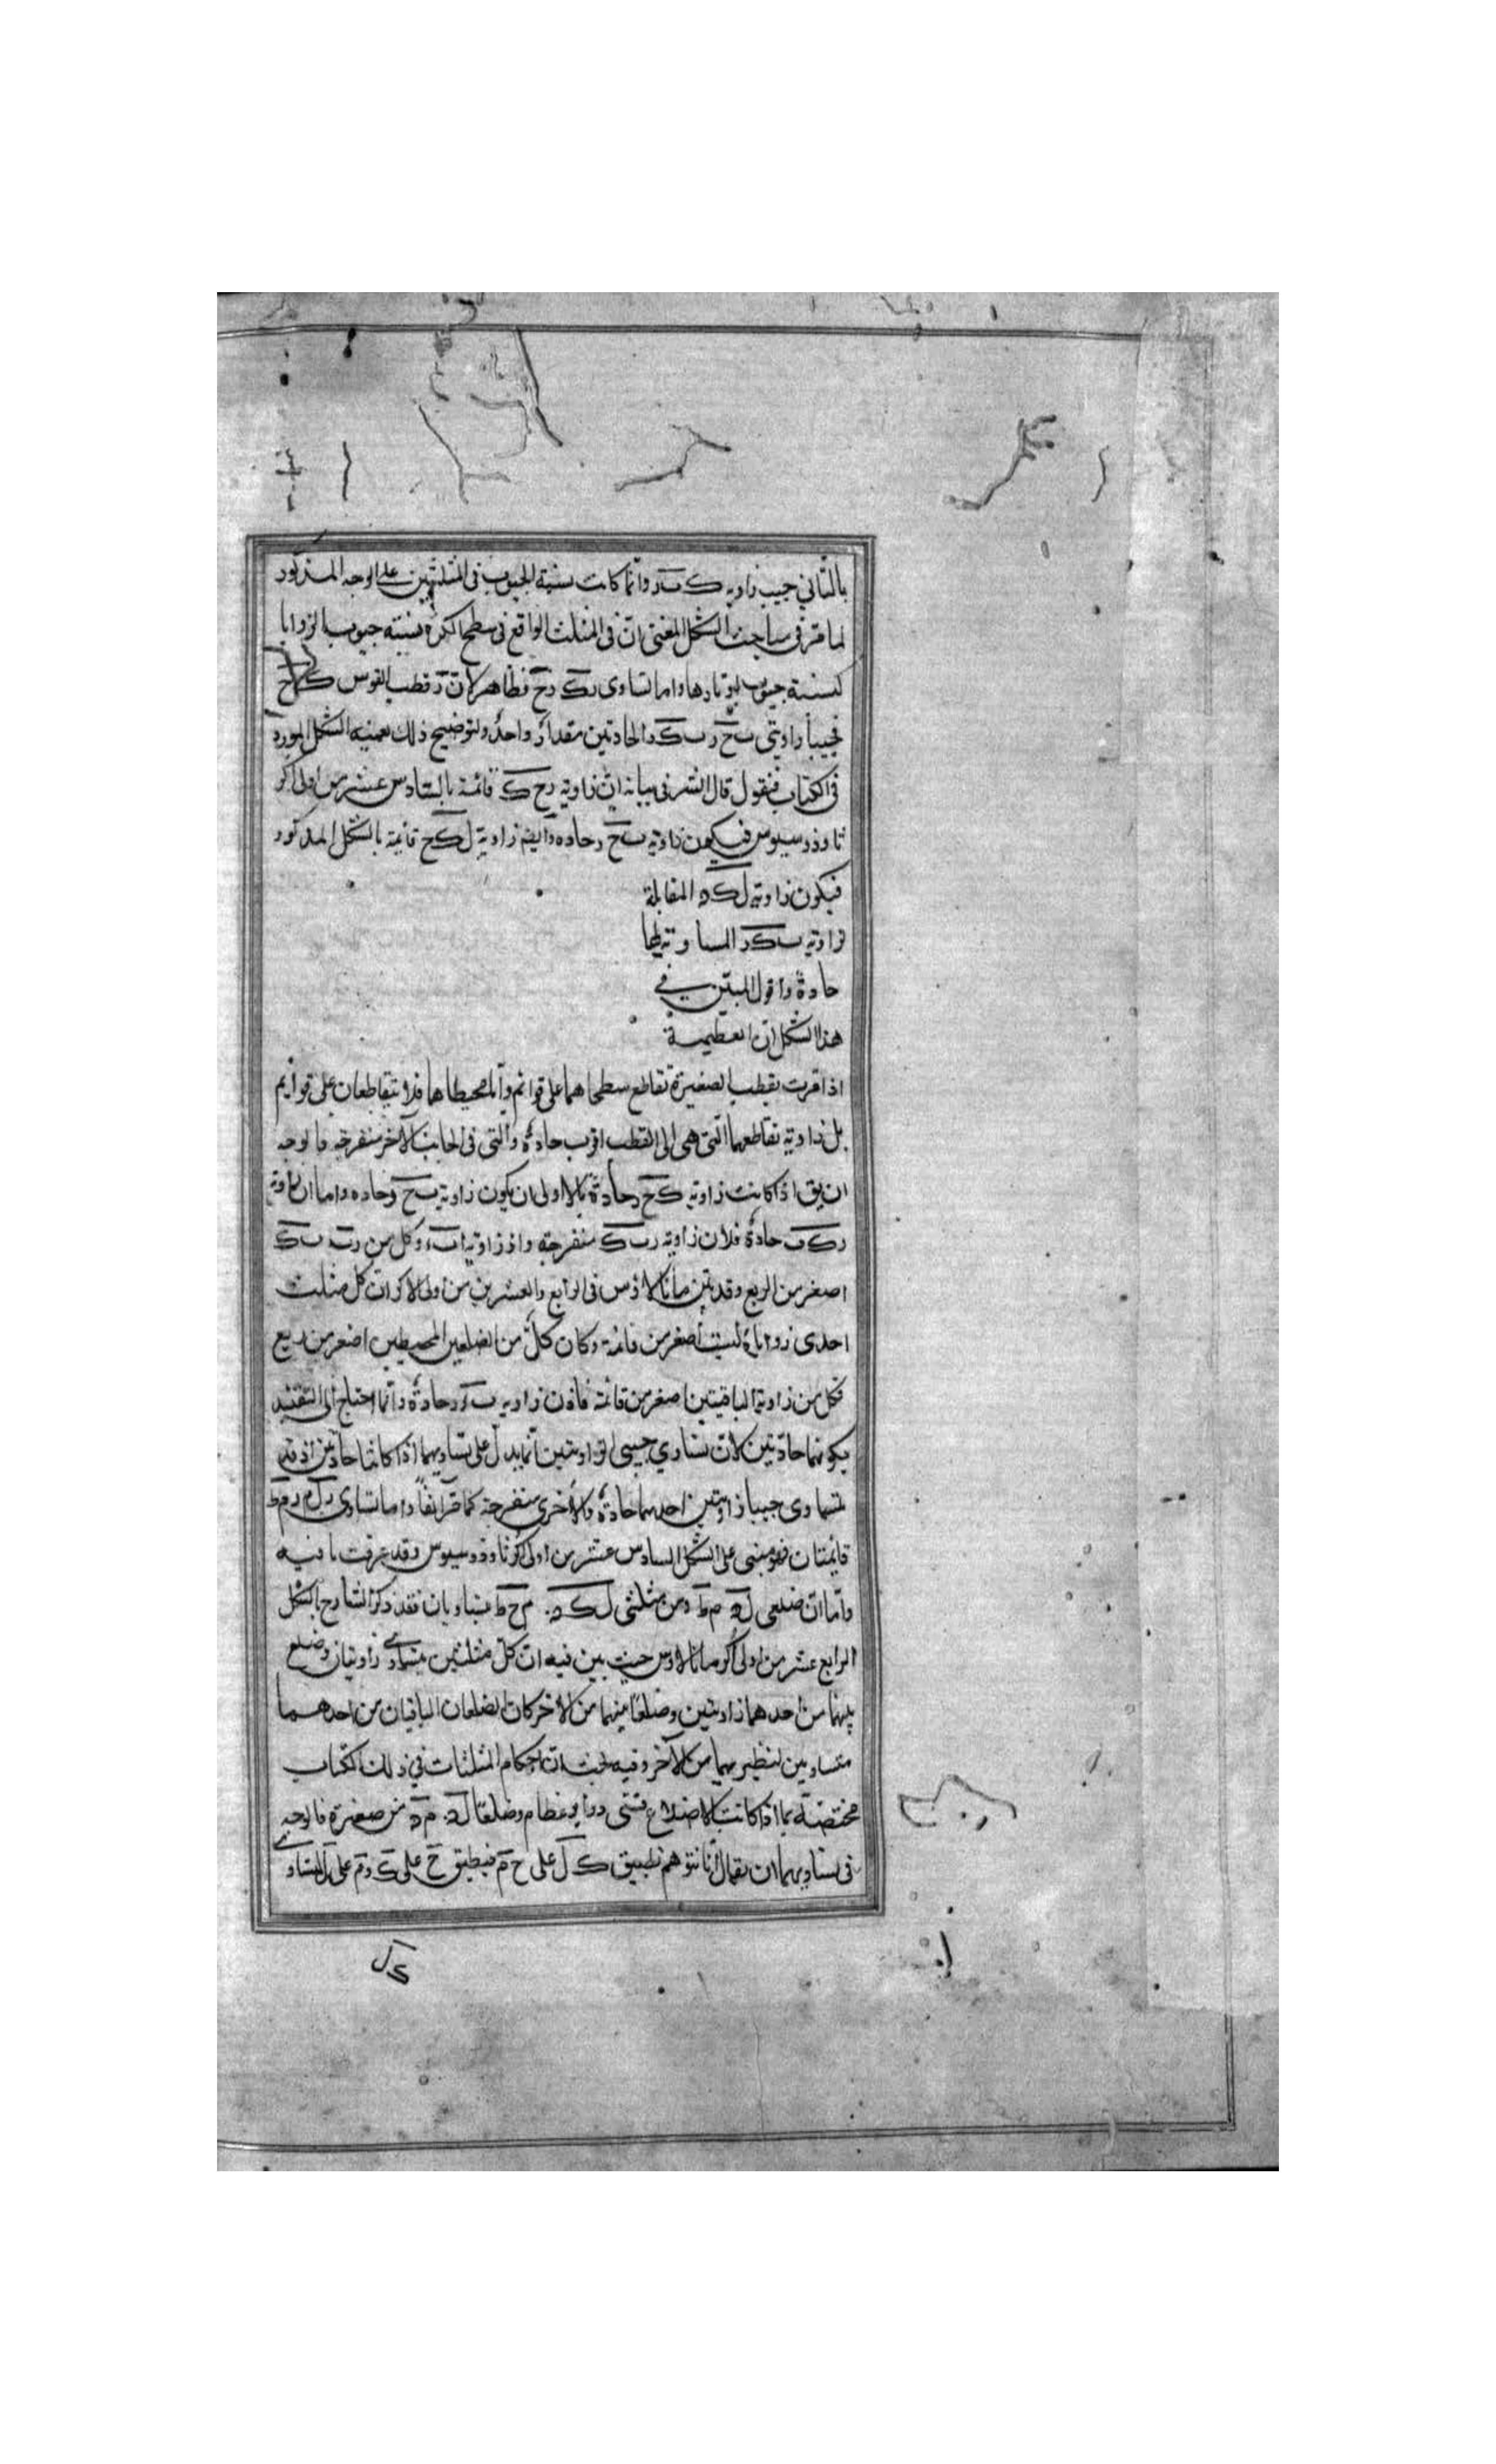 بالثاني جيب زاوية ك ب د وانما كانت نسبة الجيوب في المثلثين على الوجه المذكور
لما مر في مباحث الشكل المغني ان في المثلث الواقع في سطح الكرة نسبة جيوب الزوايا
كنسبة جيوب اوتارها واما تساوى رك رح فظاهر لان ر قطب القوس ك ح
فجيبا زاويتى ب ح ر ب ك ر الحادتين مقدار واحد ولتوضيح ذلك نعيد الشكل المورد
في الكتاب فنقول قال الشر في بيانه ان زاوية رح ك قائمة بالسادس عشر من اولى اكر
ثاوذوسيوس فيكون زاوية ب ح ر حاده وايضم زاوية ل ك ح قائمة بالشكل المذكور
فيكون زاوية ل ك ه المقابلة
لزاوية ب ك ر المساوية لها
حادة واقول المبين في
هذا الشكل ان العظيمة
اذا مرت بقطب الصغيرة تقاطع سطحاهما على قوائم واما محيطاهما فلا يتقاطعان على قوايم
بل زاوية تقاطعهما التي هي الى القطب اقرب حادة والتي في الجانب الآخر منفرجة فالوجه
ان يق اذا كانت زاوية ك ح ر حادة فالاولى ان يكون زاوية ب ح ر حاده واما ان زاوية
رك ب حادة فلان زاوية رب ك منفرجة واذ زاوية وكل من رب ب ك
اصغر من الربع وقد بين مانالاوس في الرابع والعشرين من اولى الاكر ان كل مثلث
احدى زواياه ليست اصغر من قائمة وكان كل من الضلعين المحيطين اصغر من ربع
فكل من زاويتيه الباقيتين اصغر من قائمة فاذن زاوية حادة وانما احتاج الى التقييد
بكونهما حادتين لان تساوي جيبى الزاويتين انما يدل على تساويهما اذا كانتا حادتين اذ قد
يتساوى جيبا زاويتين احدهما حادة والاخرى منفرجة كما مر آنفا واما تساوى
قائمتان فهو مبنى على الشكل السادس عشر من اولى اكر ثاوذوسيوس وقد عرفت ما فيه
واما ان ضلعى ل ه م ط من مثلثى ل ك ه م ح ط متساويان فقد ذكر الشارح بالشكل
الرابع عشر من اولى اكر مانالاوس حيث بين فيه ان كل مثلثين يتساوى زاويتان وضلع
بينهما من احدهما زاويتين وضلعا بينهما من الآخر كان الضلعان الباقيان من احدهما
متساويين لنظيريهما من الآخر وفيه بحث لان احكام المثلثات في ذلك الكتاب
مختصة بما اذا كانت الاضلاع قسى دواير عظام وضلعا من صغيرة فالوجه
في تساويهما ان يقال انا نتوهم تطبيق ك ل على ح م فينطبق ح على ك و م على ل لتساوى
ك ل